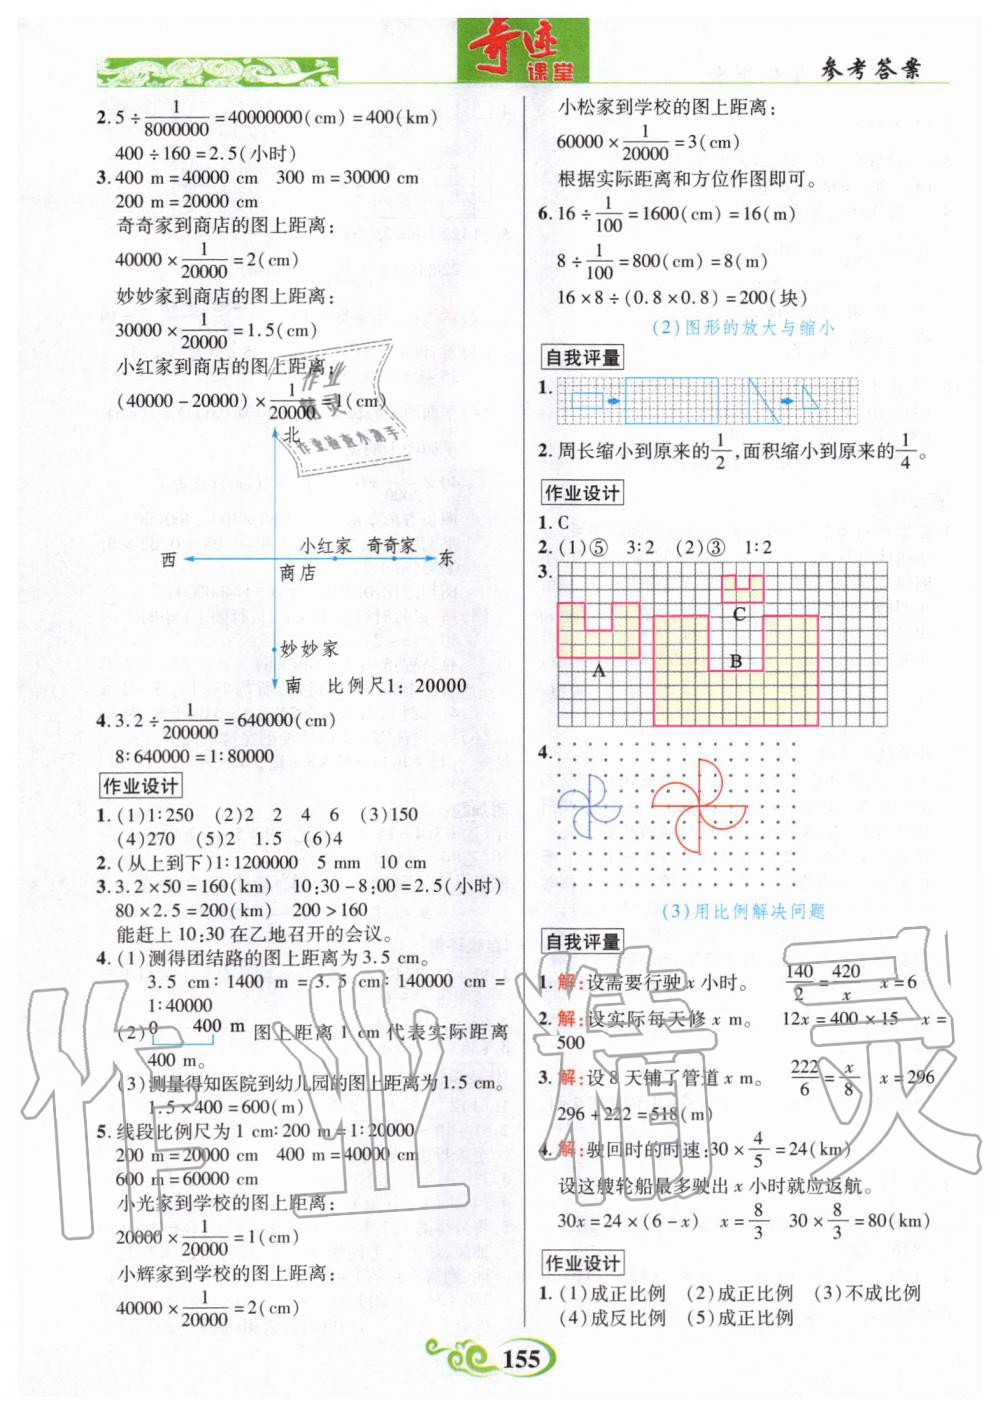 奇迹课堂
参考答案
2. 5÷1/8000000=40000000(cm)=400(km)
400÷160=2.5(小时)
3. 400 m=40000 cm 300 m=30000 cm
200 m=20000 cm
奇奇家到商店的图上距离:
40000×1/20000=2(cm)
妙妙家到商店的图上距离:
30000×1/20000=1.5(cm)
小红家到商店的图上距离:
(40000-20000)×1/20000=1(cm)
北
西
小红家 奇奇家
东
商店
妙妙家
南 比例尺1:20000
4. 3.2÷1/200000=640000(cm)
8:640000=1:80000
作业设计
1. (1)1:250 (2)2 2 4 6 (3)150
(4)270 (5)2 1.5 (6)4
2. (从上到下)1:1200000 5 mm 10 cm
3. 3.2×50=160(km) 10:30-8:00=2.5(小时)
80×2.5=200(km) 200>160
能赶上10:30在乙地召开的会议。
4. (1)测得团结路的图上距离为3.5 cm。
3.5 cm:1400 m=3.5 cm:140000 cm=
1:40000
(2) 0 400 m 图上距离1 cm代表实际距离
400 m。
(3)测量得知医院到幼儿园的图上距离为1.5 cm。
1.5×400=600(m)
5. 线段比例尺为1 cm:200 m=1:20000
200 m=20000 cm 400 m=40000 cm
600 m=60000 cm
小光家到学校的图上距离:
20000×1/20000=1(cm)
小辉家到学校的图上距离:
40000×1/20000=2(cm)
小松家到学校的图上距离:
60000×1/20000=3(cm)
根据实际距离和方位作图即可。
6. 16÷1/100=1600(cm)=16(m)
8÷1/100=800(cm)=8(m)
16×8÷(0.8×0.8)=200(块)
(2)图形的放大与缩小
自我评量
1.
2. 周长缩小到原来的1/2,面积缩小到原来的1/4。
作业设计
1. C
2. (1)⑤ 3:2 (2)③ 1:2
3.
C
A
B
4.
(3)用比例解决问题
自我评量
1. 解:设需要行驶x小时。 140/2=420/x x=6
2. 解:设实际每天修x m。 12x=400×15 x=
500
3. 解:设8天铺了管道x m。 222/6=x/8 x=296
296+222=518(m)
4. 解:驶回时的时速:30×4/5=24(km)
设这艘轮船最多驶出x小时就应返航。
30x=24×(6-x) x=8/3 30×8/3=80(km)
作业设计
1. (1)成正比例 (2)成正比例 (3)不成比例
(4)成反比例 (5)成正比例
155
作业精灵
作业检查小助手
作业精灵